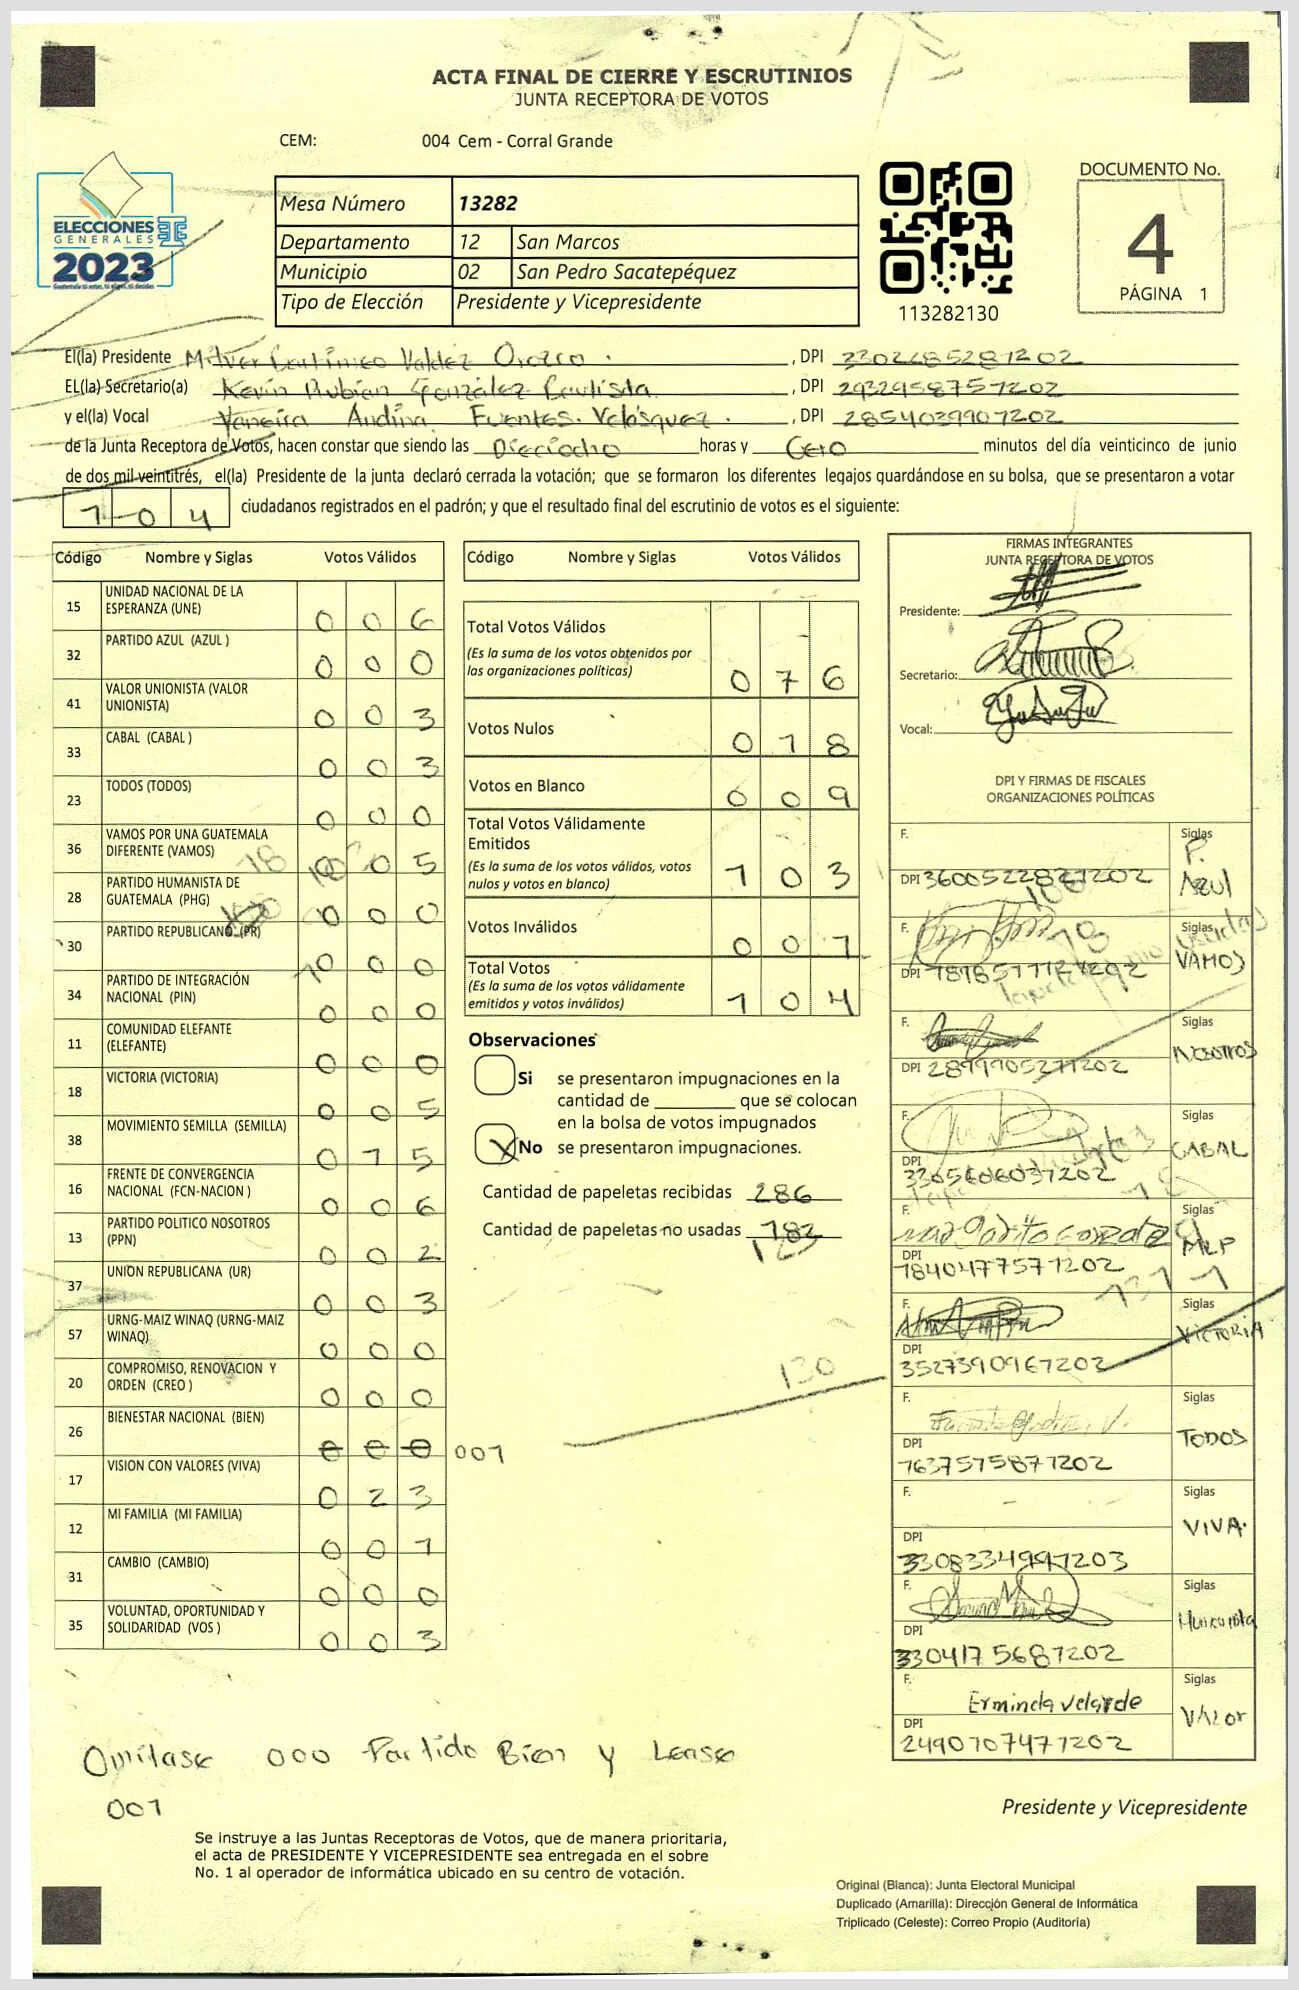 ACTA FINAL DE CIERRE Y ESCRUTINIOS
JUNTA RECEPTORA DE VOTOS
CEM: 004 Cem - Corral Grande
ELECCIONES
GENERALES
2023
Mesa Número 13282
Departamento 12 San Marcos
Municipio 02 San Pedro Sacatepéquez
Tipo de Elección Presidente y Vicepresidente
113282130
DOCUMENTO No.
4
PÁGINA 1
El(la) Presidente Valdéz Orozco . , DPI 3302285281202
EL(la) Secretario(a) Kevin Rubían González Bautista , DPI 2932958751202
y el(la) Vocal Andina Fuentes Velásquez . , DPI 2854039901202
de la Junta Receptora de Votos, hacen constar que siendo las Dieciocho horas y Cero minutos del día veinticinco de junio
de dos mil veintitrés, el(la) Presidente de la junta declaró cerrada la votación; que se formaron los diferentes legajos guardándose en su bolsa, que se presentaron a votar
104 ciudadanos registrados en el padrón; y que el resultado final del escrutinio de votos es el siguiente:
Código Nombre y Siglas Votos Válidos
15 UNIDAD NACIONAL DE LA ESPERANZA (UNE) 0 0 6
32 PARTIDO AZUL (AZUL ) 0 0 0
41 VALOR UNIONISTA (VALOR UNIONISTA) 0 0 3
33 CABAL (CABAL ) 0 0 3
23 TODOS (TODOS) 0 0 0
36 VAMOS POR UNA GUATEMALA DIFERENTE (VAMOS) 0 0 5
28 PARTIDO HUMANISTA DE GUATEMALA (PHG) 0 0 0
30 PARTIDO REPUBLICANO (PR) 0 0 0
34 PARTIDO DE INTEGRACIÓN NACIONAL (PIN) 0 0 0
11 COMUNIDAD ELEFANTE (ELEFANTE) 0 0 0
18 VICTORIA (VICTORIA) 0 0 5
38 MOVIMIENTO SEMILLA (SEMILLA) 0 1 5
16 FRENTE DE CONVERGENCIA NACIONAL (FCN-NACION ) 0 0 6
13 PARTIDO POLITICO NOSOTROS (PPN) 0 0 2
37 UNION REPUBLICANA (UR) 0 0 3
57 URNG-MAIZ WINAQ (URNG-MAIZ WINAQ) 0 0 0
20 COMPROMISO, RENOVACION Y ORDEN (CREO ) 0 0 0
26 BIENESTAR NACIONAL (BIEN) 0 0 0 001
17 VISION CON VALORES (VIVA) 0 2 3
12 MI FAMILIA (MI FAMILIA) 0 0 1
31 CAMBIO (CAMBIO) 0 0 0
35 VOLUNTAD, OPORTUNIDAD Y SOLIDARIDAD (VOS ) 0 0 3
Código Nombre y Siglas Votos Válidos
Total Votos Válidos
(Es la suma de los votos obtenidos por
las organizaciones políticas) 0 7 6
Votos Nulos 0 1 8
Votos en Blanco 0 0 9
Total Votos Válidamente
Emitidos
(Es la suma de los votos válidos, votos
nulos y votos en blanco) 1 0 3
Votos Inválidos 0 0 1
Total Votos
(Es la suma de los votos válidamente
emitidos y votos inválidos) 1 0 4
Observaciones
Si se presentaron impugnaciones en la
cantidad de ________ que se colocan
en la bolsa de votos impugnados
X No se presentaron impugnaciones.
Cantidad de papeletas recibidas 286
Cantidad de papeletas no usadas 182
130
FIRMAS INTEGRANTES
JUNTA RECEPTORA DE VOTOS
Presidente:
Secretario:
Vocal:
DPI Y FIRMAS DE FISCALES
ORGANIZACIONES POLÍTICAS
F. Siglas P. Azul
DPI 3600522821202
F. Siglas VAMOS
DPI
F. Siglas NOSOTROS
DPI 2899905271202
F. Siglas CABAL
DPI 3305606031202
F. Siglas MLP
DPI 1840477571202
F. Siglas VICTORIA
DPI 3527390961202
F. Siglas TODOS
DPI 1637575871202
F. Siglas VIVA.
DPI 3308334991203
F. Siglas Humanista
DPI 330417 5681202
F. Erminda Velarde Siglas VALOR
DPI 2490707471202
Omitase 000 Partido Bien y Lease
001
Presidente y Vicepresidente
Se instruye a las Juntas Receptoras de Votos, que de manera prioritaria,
el acta de PRESIDENTE Y VICEPRESIDENTE sea entregada en el sobre
No. 1 al operador de informática ubicado en su centro de votación.
Original (Blanca): Junta Electoral Municipal
Duplicado (Amarilla): Dirección General de Informática
Triplicado (Celeste): Correo Propio (Auditoría)